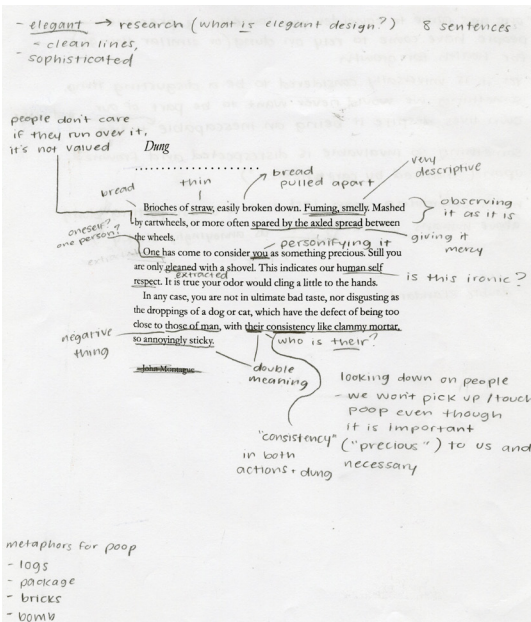 - elegant → research (what is elegant design?) 8 sentences
- clean lines,
sophisticated
people don't care
if they run over it,
it's not valued
Dung
very
descriptive
bread
thin
bread
pulled apart
Brioches of straw, easily broken down. Fuming, smelly. Mashed
by cartwheels, or more often spared by the axled spread between
the wheels.
observing
it as it is
giving it
mercy
oneself?
one person?
personifying it
One has come to consider you as something precious. Still you
are only gleaned with a shovel. This indicates our human self
extracted
respect. It is true your odor would cling a little to the hands.
is this ironic?
In any case, you are not in ultimate bad taste, nor disgusting as
the droppings of a dog or cat, which have the defect of being too
close to those of man, with their consistency like clammy mortar,
so annoyingly sticky.
negative
thing
who is their?
John Montague
double
meaning
looking down on people
- we won't pick up/touch
poop even though
it is important
("precious") to us and
necessary
"consistency"
in both
actions + dung
metaphors for poop
- logs
- package
- bricks
- bomb